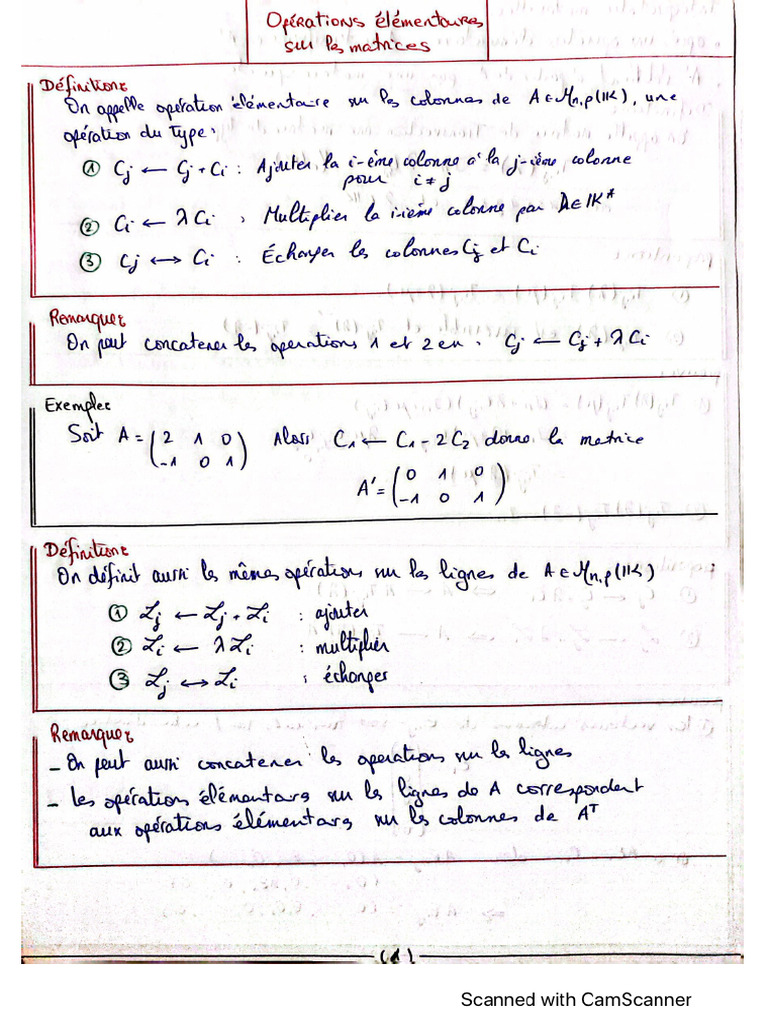 Opérations élémentaires
sur les matrices
Définition:
On appelle opération élémentaire sur les colonnes de A ∈ Mn,p(IK), une
opération du type:
① Cj ← Cj + Ci : Ajouter la i-ème colonne à la j-ième colonne
pour i ≠ j
② Ci ← λ Ci , Multiplier la i-ième colonne par λ ∈ IK*
③ Cj ↔ Ci : Échanger les colonnes Cj et Ci
Remarque:
On peut concatener les operations 1 et 2 en : Cj ← Cj + λ Ci
Exemple:
Soit A = ( 2 1 0 ) Alors C1 ← C1 - 2C2 donne la matrice
( -1 0 1 )
A' = ( 0 1 0 )
( -1 0 1 )
Définition:
On définit aussi les mêmes opération sur les lignes de A ∈ Mn,p(IK)
① Lj ← Lj + Li : ajouter
② Li ← λ Li : multiplier
③ Lj ↔ Li : échanger
Remarque:
- On peut aussi concatener les operations sur les lignes
- les opérations élémentaires sur les lignes de A correspondent
aux opérations élémentaires sur les colonnes de A^T
(1)
Scanned with CamScanner